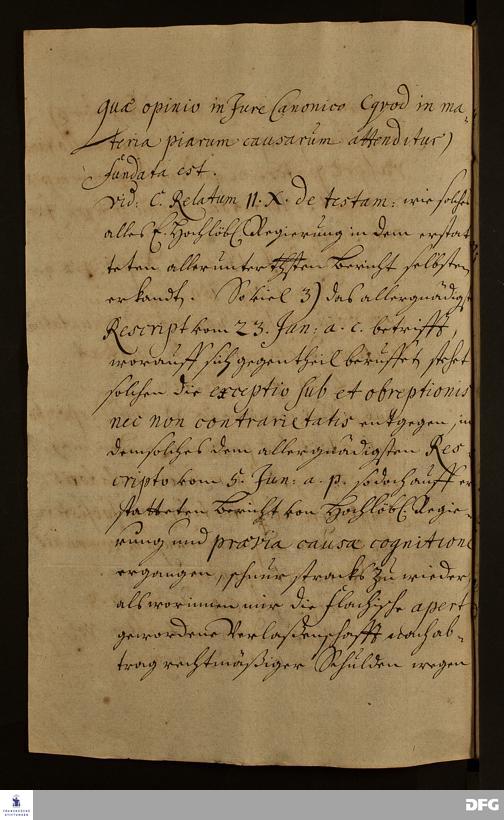 quæ opinio in Jure Canonico (quod in ma-
teria piarum causarum attenditur)
fundata est.
vid: C. Relatum 11. X. de testam: wie solches
alles E. Hochlöbl. Regierung in dem erstat
teten allerunterthsten Bericht selbsten
erkandt. So viel 3) das allergnädigst
Rescript vom 23. Jan: a. c. betrifft,
worauff sich gegentheil beruffet, stehet
solchen die exceptio sub et obreptionis
nec non contrarietatis entgegen, in
dem solches dem allergnädigsten Res-
cripto vom 5. Jun: a. p. so doch auff er
statteten Bericht von Hochlöbl. Regie-
rung und prævia causæ cognitione
ergangen, schnur stracks zu wieder,
als worinnen mir die Flachische apert
gewordene Verlaßenschafft nach ab-
trag rechtmäßiger Schulden wegen
FRANCKESCHE
STIFTUNGEN
DFG